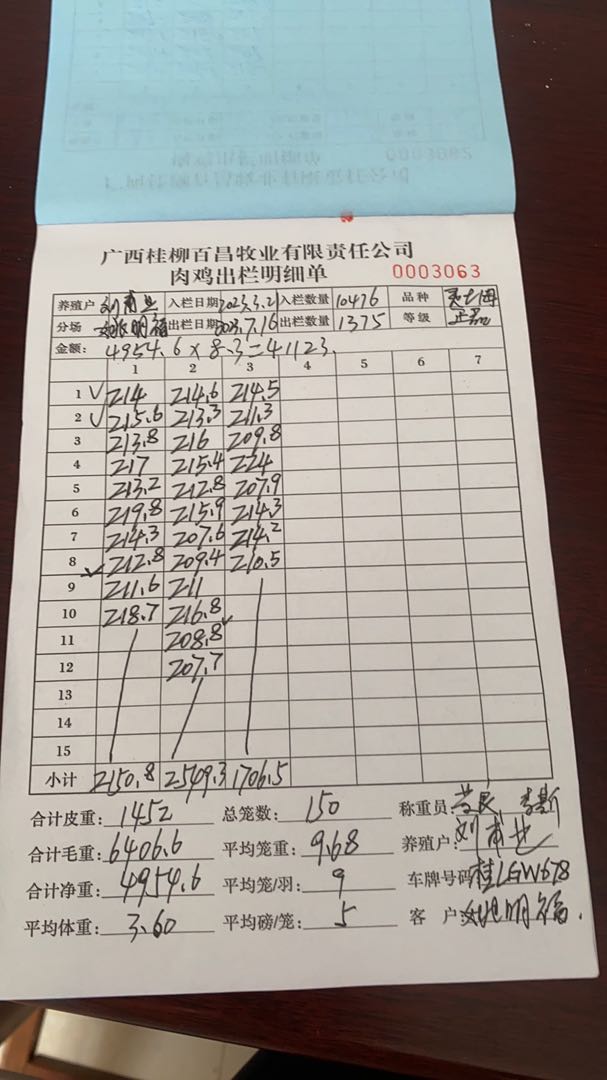 广西桂柳百昌牧业有限责任公司
肉鸡出栏明细单 0003063
养殖户 入栏日期 2023.3.21 入栏数量 10476 品种
分场 姚明福 出栏日期 2023.7.16 出栏数量 1375 等级 正品
金额: 4954.6 × 8.3 = 41123.
1 2 3 4 5 6 7
1 214 214.6 214.5
2 215.6 213.3 211.3
3 213.8 216 209.8
4 217 215.4 224
5 213.2 212.8 207.9
6 219.8 215.9 214.3
7 214.3 207.6 214.2
8 212.8 209.4 210.5
9 211.6 211
10 218.7 216.8
11 208.8
12 207.7
13
14
15
小计 2150.8 2549.3 1706.5
合计皮重: 1452 总笼数: 150 称重员:
合计毛重: 6406.6 平均笼重: 9.68 养殖户:
合计净重: 4954.6 平均笼/羽: 9 车牌号码 桂LGW678
平均体重: 3.60 平均磅/笼: 5 客 户: 姚明福.